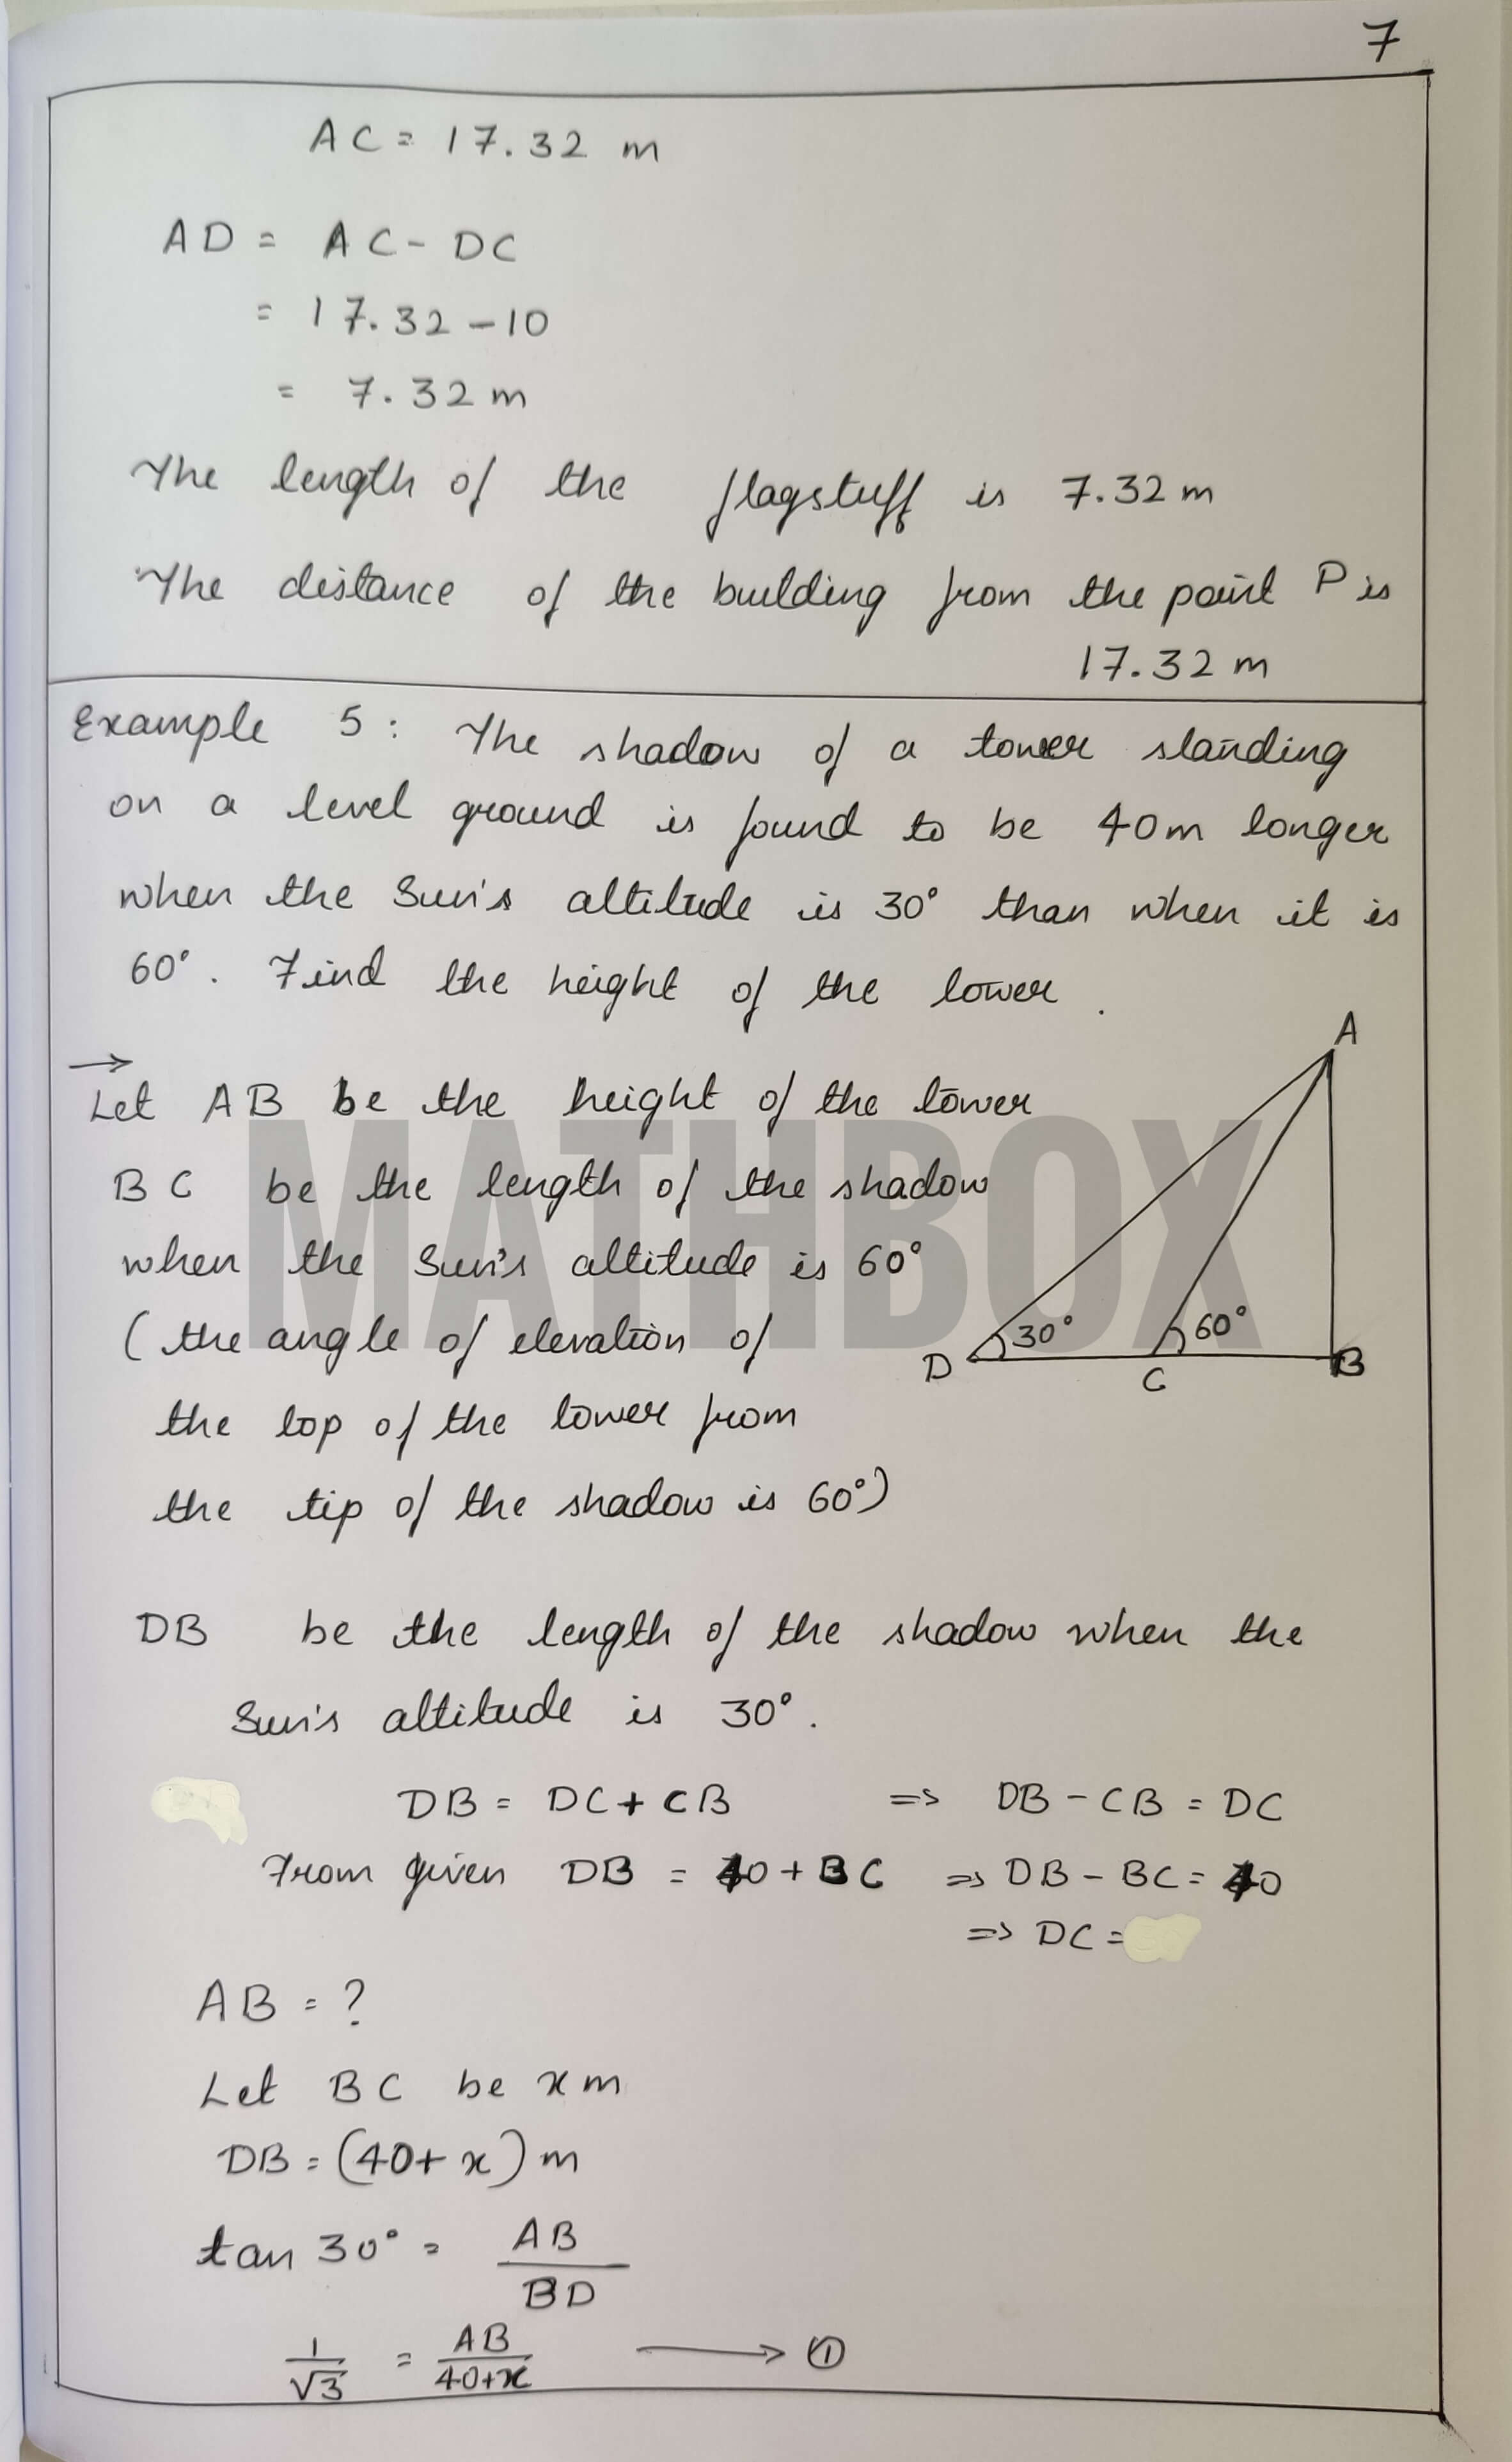 7
AC = 17.32 m
AD = AC - DC
= 17.32 - 10
= 7.32 m
The length of the flagstuff is 7.32 m
The distance of the building from the point P is
17.32 m
Example 5 : The shadow of a tower standing
on a level ground is found to be 40m longer
when the Sun's altitude is 30° than when it is
60°. Find the height of the tower.
→
Let AB be the height of the tower
BC be the length of the shadow
when the Sun's altitude is 60°
(the angle of elevation of
the top of the tower from
the tip of the shadow is 60°)
A
30°
60°
D
C
B
MATHBOX
DB be the length of the shadow when the
Sun's altitude is 30°.
DB = DC + CB => DB - CB = DC
From given DB = 40 + BC => DB - BC = 40
=> DC =
AB = ?
Let BC be x m
DB = (40 + x) m
tan 30° = AB/BD
1/√3 = AB/40+x → ①